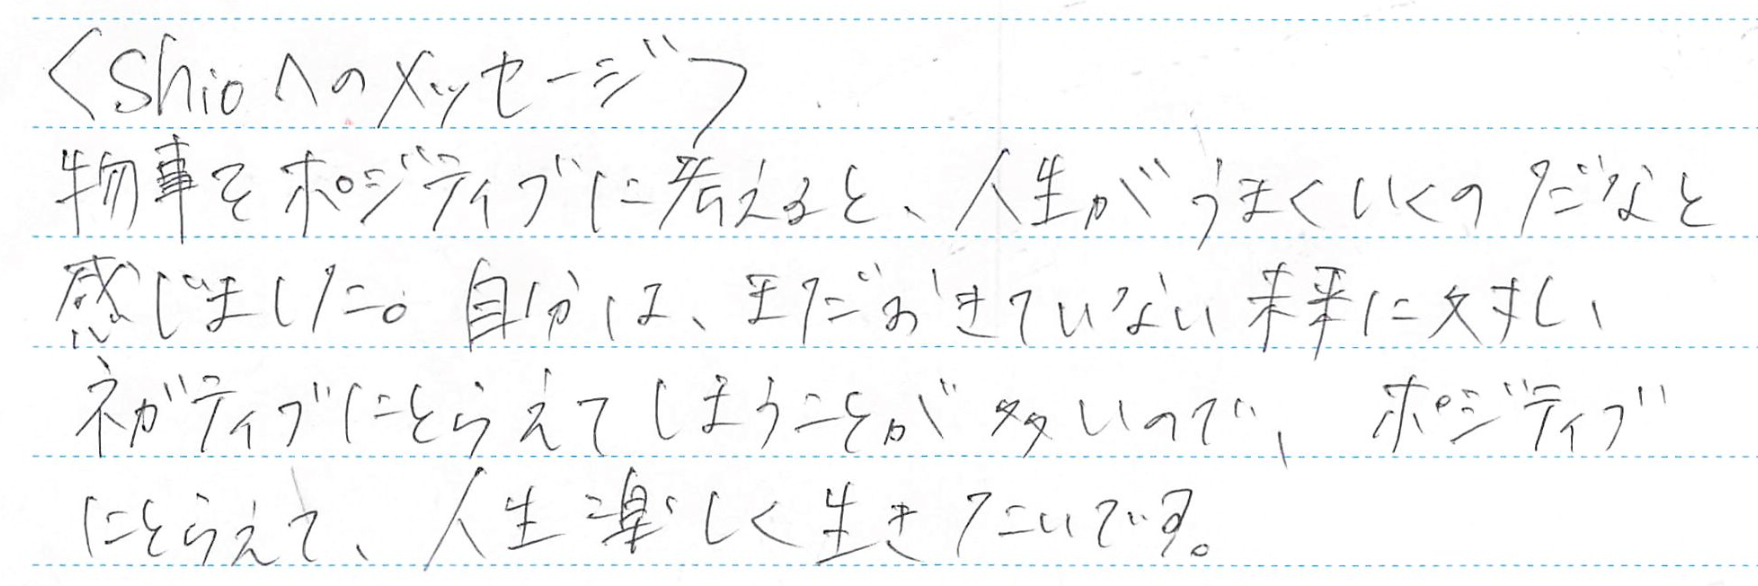 <Shioへのメッセージ>
物事をポジティブに考えると、人生がうまくいくのだなと
感じました。自分は、まだおきていない未来に対し、
ネガティブにとらえてしまうことが多いので、ポジティブ
にとらえて、人生楽しく生きたいです。